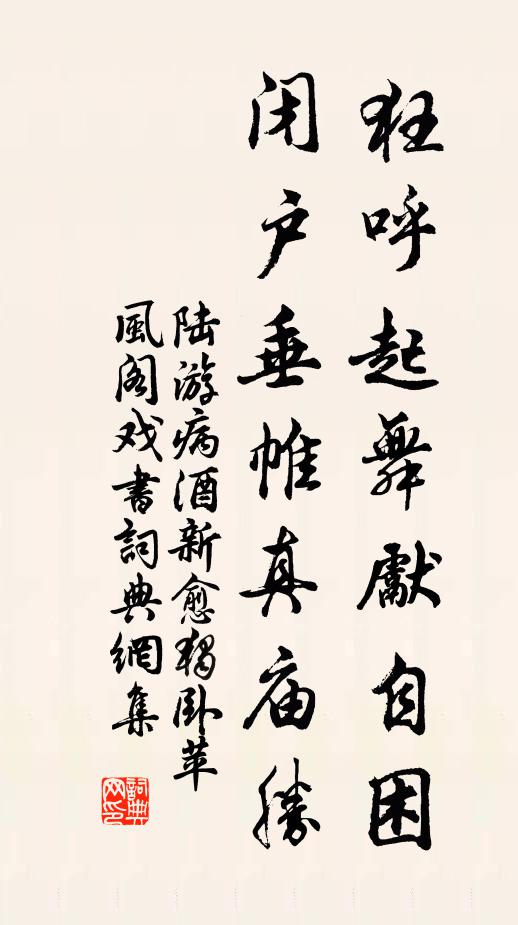 狂呼起舞獻自困
闭户垂帷真庙勝
陆游病酒新愈獨卧苹
風阁戏書詞典網集
詞典网印